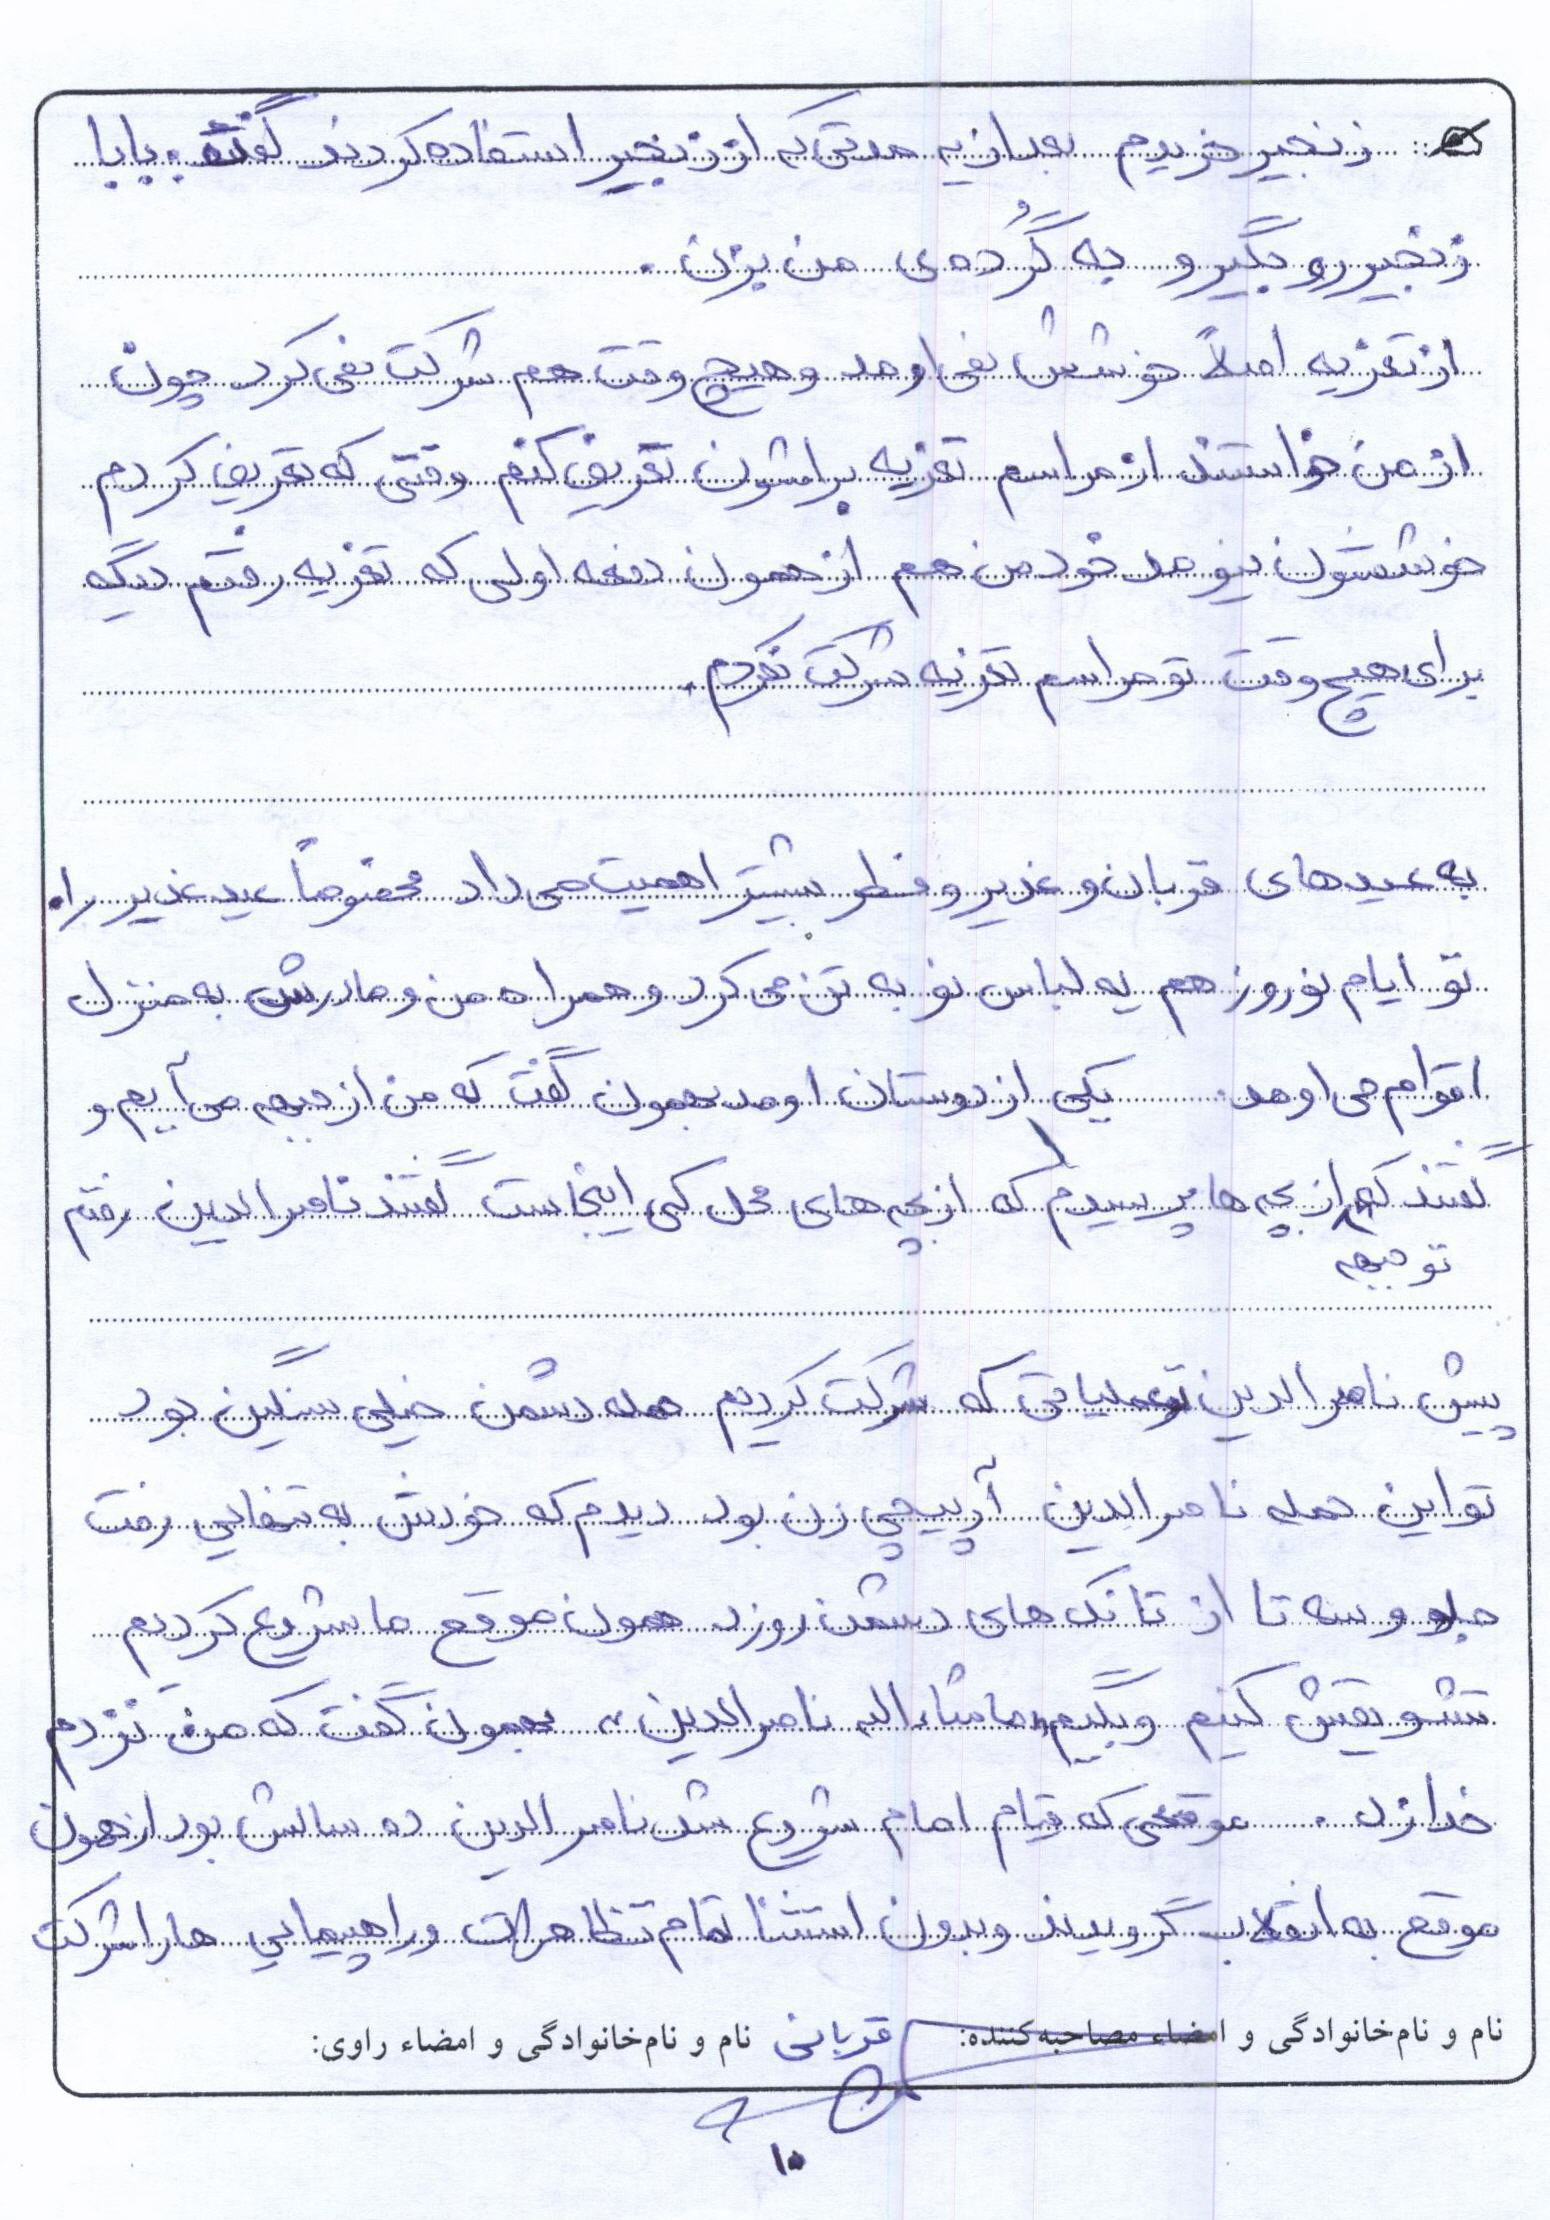 زنجیر خریدم بعد از یه مدتی که از زنجیر استفاده کردند گفت: بابا
زنجیر رو بگیر و به گُرده‌ی من بزن.
از تعزیه اصلاً خوشش نمی اومد و هیچ وقت هم شرکت نمی کرد چون
از من خواستند از مراسم تعزیه براشون تعریف کنم وقتی که تعریف کردم
خوششون نیومد خود من هم از همون دفعه اولی که تعزیه رفتم دیگه
برای هیچ وقت تو مراسم تعزیه شرکت نکردم.
به عیدهای قربان و غدیر و فطر بیشتر اهمیت می داد مخصوصاً عید غدیر را.
تو ایام نوروز هم یه لباس نو به تن می کرد و همراه من و مادرش به منزل
اقوام می اومد. یکی از دوستان اومد بهمون گفت که من از جبهه می آیم و
گفتند که از بچه ها پرسیدم که از بچه های محل کی اینجاست گفتند ناصرالدین رفتم
تو جبهه
پیش ناصرالدین تو عملیاتی که شرکت کردیم حمله دشمن خیلی سنگین بود
تو این حمله ناصرالدین آرپیچی زن بود دیدم که خودش به تنهایی رفت
جلو و سه تا از تانک های دشمن رو زد همون موقع ما شروع کردیم
تشویقش کنیم و بگیم "ماشاءالله ناصرالدین" بهمون گفت که من نزدم
خدا زد. موقعی که قیام امام شروع شد ناصرالدین ده سالش بود از همون
موقع به انقلاب گرویدند و بدون استثنا تمام تظاهرات و راهپیمایی ها را شرکت
نام و نام‌خانوادگی و امضاء مصاحبه‌کننده: قربانی نام و نام‌خانوادگی و امضاء راوی:
۱۰